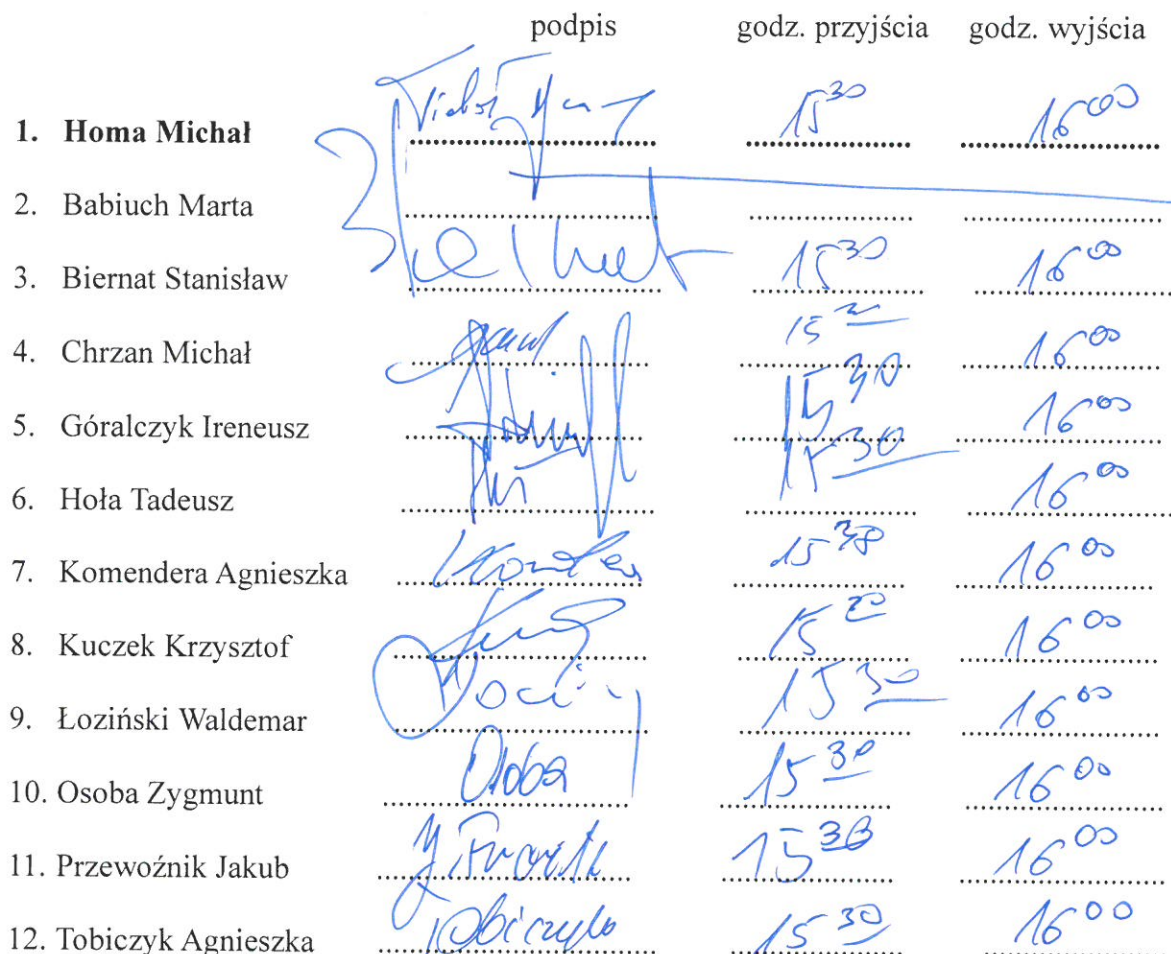 podpis godz. przyjścia godz. wyjścia
1. Homa Michał 15 30 16 00
2. Babiuch Marta
3. Biernat Stanisław 15 30 16 00
4. Chrzan Michał 15 16 00
5. Góralczyk Ireneusz 15 30 16 00
6. Hoła Tadeusz 15 30 16 00
7. Komendera Agnieszka 15 16 00
8. Kuczek Krzysztof 15 16 00
9. Łoziński Waldemar 15 30 16 00
10. Osoba Zygmunt Osoba 15 30 16 00
11. Przewoźnik Jakub 15 30 16 00
12. Tobiczyk Agnieszka Tobiczyk 15 30 16 00